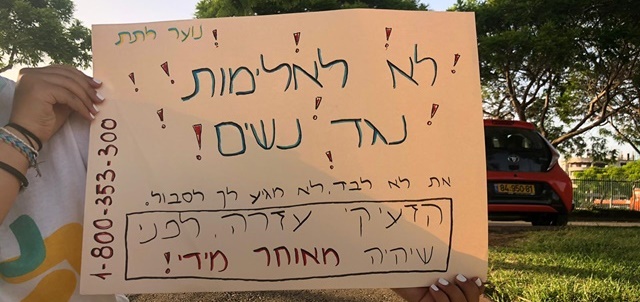 נוער לתת
לא לאלימות
נגד נשים!
את לא לבד, לא מגיע לך לסבול.
הזעיקי עזרה, לפני
שיהיה מאוחר מידי!
1-800-353-300